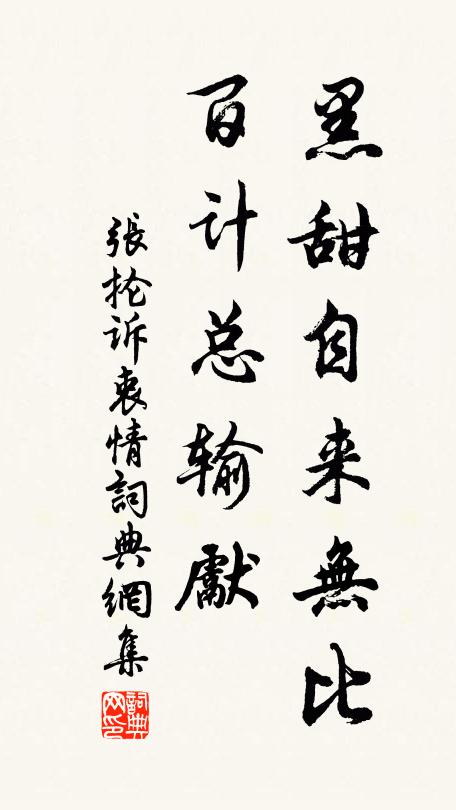 黑甜自来無比
百计总输獻
張抡诉衷情詞典網集
詞典
网印